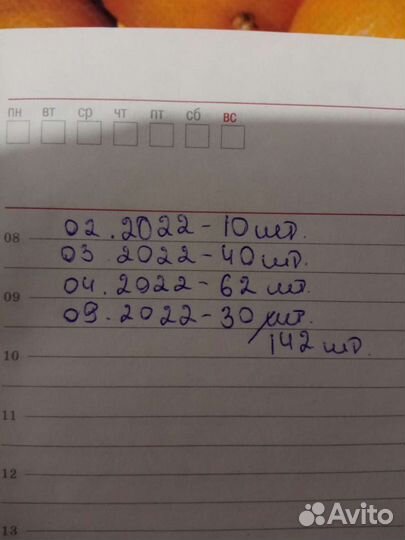 пн вт ср чт пт сб вс
02.2022-10шт.
08
03.2022-40шт.
04.2022-62шт.
09
09.2022-30шт.
142шт.
10
11
12
13
Avito